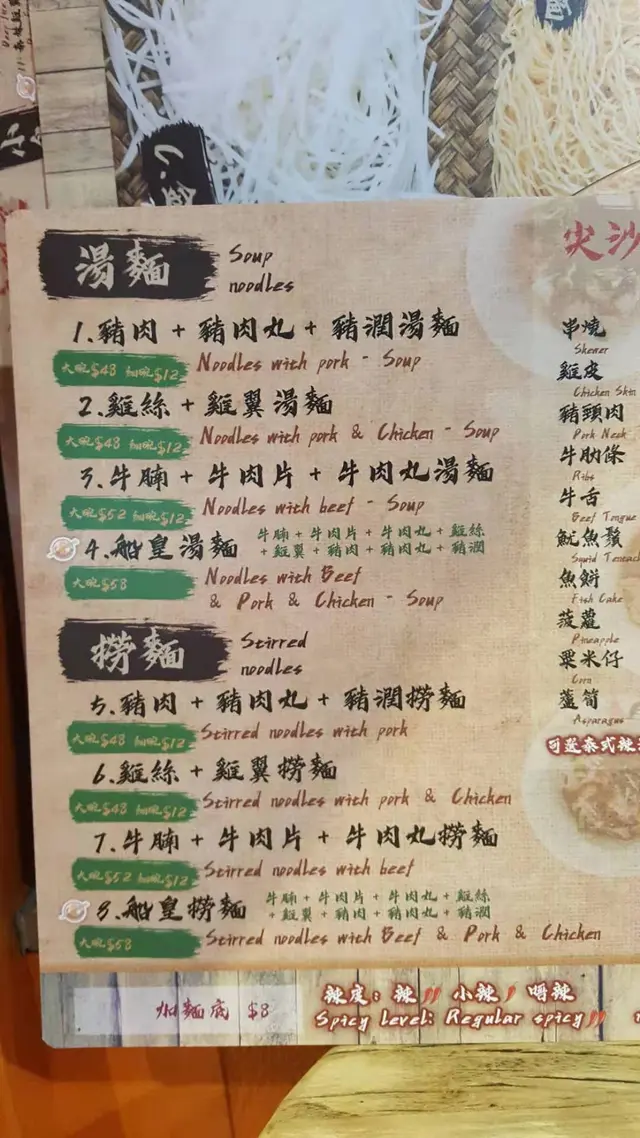 湯麵
Soup
noodles
1.豬肉 + 豬肉丸 + 豬潤湯麵
大碗$48 細碗$12
Noodles with pork - Soup
2.雞絲 + 雞翼湯麵
大碗$48 細碗$12
Noodles with pork & Chicken - Soup
3.牛腩 + 牛肉片 + 牛肉丸湯麵
大碗$52 細碗$12
Noodles with beef - Soup
4.船皇湯麵
牛腩 + 牛肉片 + 牛肉丸 + 雞絲
+ 雞翼 + 豬肉 + 豬肉丸 + 豬潤
大碗$58
Noodles with Beef
& Pork & Chicken - Soup
撈麵
Stirred
noodles
5.豬肉 + 豬肉丸 + 豬潤撈麵
大碗$48 細碗$12
Stirred noodles with pork
6.雞絲 + 雞翼撈麵
大碗$48 細碗$12
Stirred noodles with pork & Chicken
7.牛腩 + 牛肉片 + 牛肉丸撈麵
大碗$52 細碗$12
Stirred noodles with beef
8.船皇撈麵
牛腩 + 牛肉片 + 牛肉丸 + 雞絲
+ 雞翼 + 豬肉 + 豬肉丸 + 豬潤
大碗$58
Stirred noodles with Beef & Pork & Chicken
加麵底 $8
辣度: 辣 小辣 唔辣
Spicy Level: Regular spicy
尖沙
串燒
Skewer
雞皮
Chicken Skin
豬頸肉
Pork Neck
牛肋條
Ribs
牛舌
Beef Tongue
魷魚鬚
Squid Tentacl
魚餅
Fish Cake
菠蘿
Pineapple
粟米仔
Corn
蘆筍
Asparagus
可選泰式辣